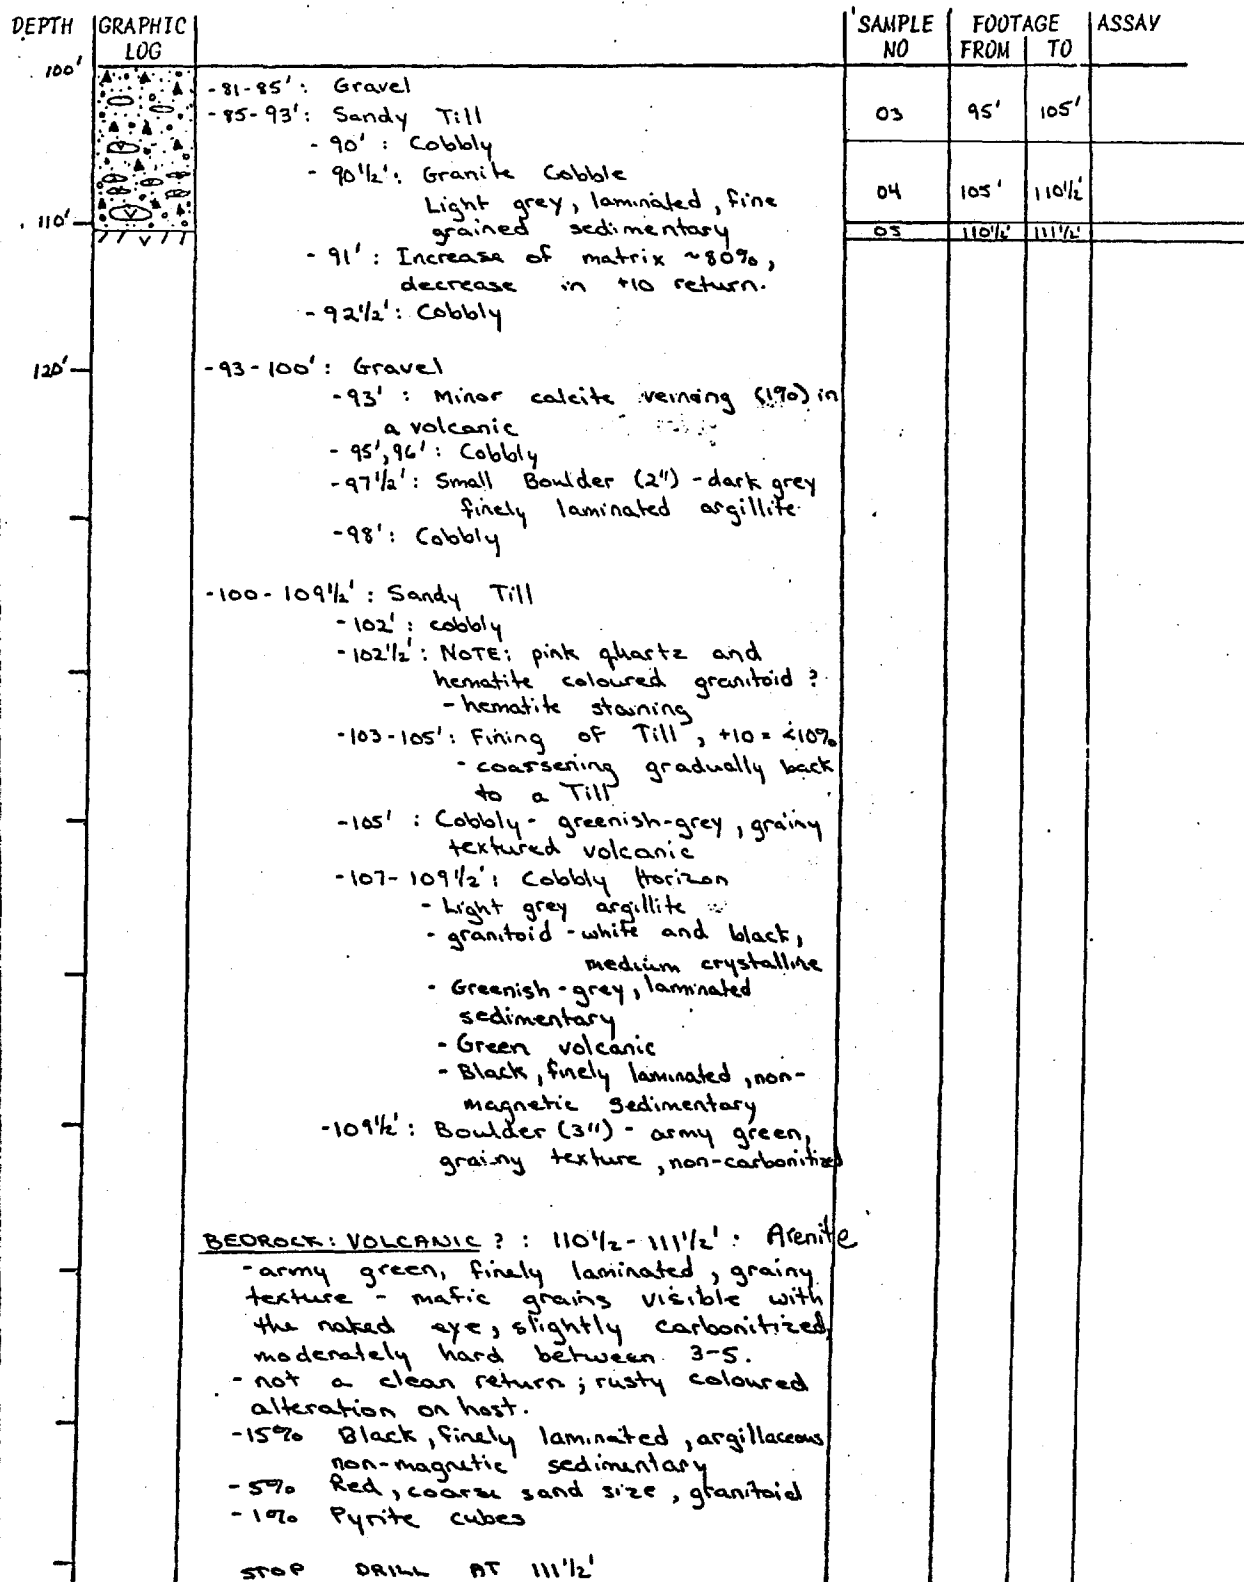 DEPTH GRAPHIC LOG SAMPLE NO FOOTAGE FROM TO ASSAY
100'
-81-85': Gravel
-85-93': Sandy Till
03 95' 105'
- 90': Cobbly
- 90 1/2': Granite Cobble
Light grey, laminated, fine
04 105' 110 1/2'
110'
grained sedimentary
05 110 1/2' 111 1/2'
- 91': Increase of matrix ~80%,
decrease in +10 return.
- 92 1/2': Cobbly
120'
-93-100': Gravel
-93': Minor calcite veining (1%) in
a volcanic
- 95', 96': Cobbly
-97 1/2': Small Boulder (2") - dark grey
finely laminated argillite
-98': Cobbly
-100-109 1/2': Sandy Till
-102': cobbly
-102 1/2': NOTE: pink quartz and
hematite coloured granitoid?
- hematite staining
-103-105': Fining of Till, +10 = <10%
- coarsening gradually back
to a Till
-105': Cobbly - greenish-grey, grainy
textured volcanic
-107-109 1/2': Cobbly Horizon
- Light grey argillite
- granitoid - white and black,
medium crystalline
- Greenish-grey, laminated
sedimentary
- Green volcanic
- Black, finely laminated, non-
magnetic sedimentary
-109 1/2': Boulder (3") - army green,
grainy texture, non-carbonitized
BEDROCK: VOLCANIC ? : 110 1/2 - 111 1/2' : Arenite
- army green, finely laminated, grainy
texture - mafic grains visible with
the naked eye, slightly carbonitized,
moderately hard between 3-5.
- not a clean return; rusty coloured
alteration on host.
-15% Black, finely laminated, argillaceous
non-magnetic sedimentary
-5% Red, coarse sand size, granitoid
-1% Pyrite cubes
STOP DRILL AT 111 1/2'